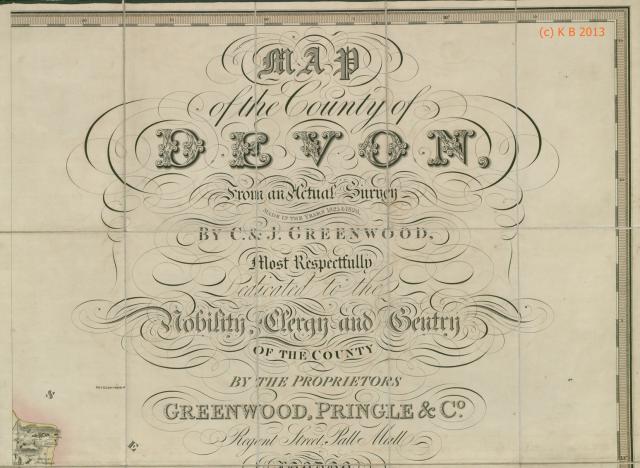 (c) K B 2013
MAP
of the County of
DEVON,
From an Actual Survey
MADE IN THE YEARS
BY C. & J. GREENWOOD,
Most Respectfully
Dedicated to the
Nobility, Clergy and Gentry
OF THE COUNTY
BY THE PROPRIETORS
GREENWOOD, PRINGLE & Co.
Regent Street, Pall Mall
N
E